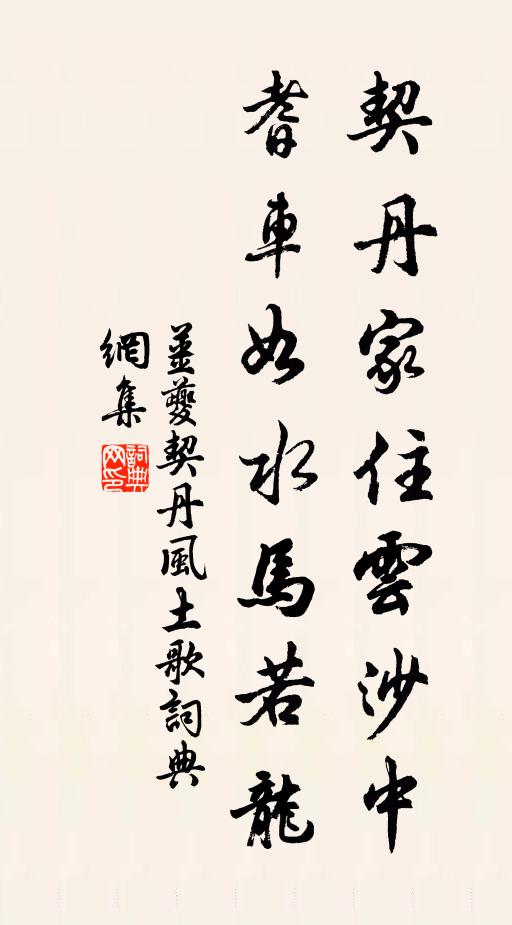 契丹家住雲沙中
耆車如水馬若龍
姜夔契丹風土歌詞典
網集
詞典網印